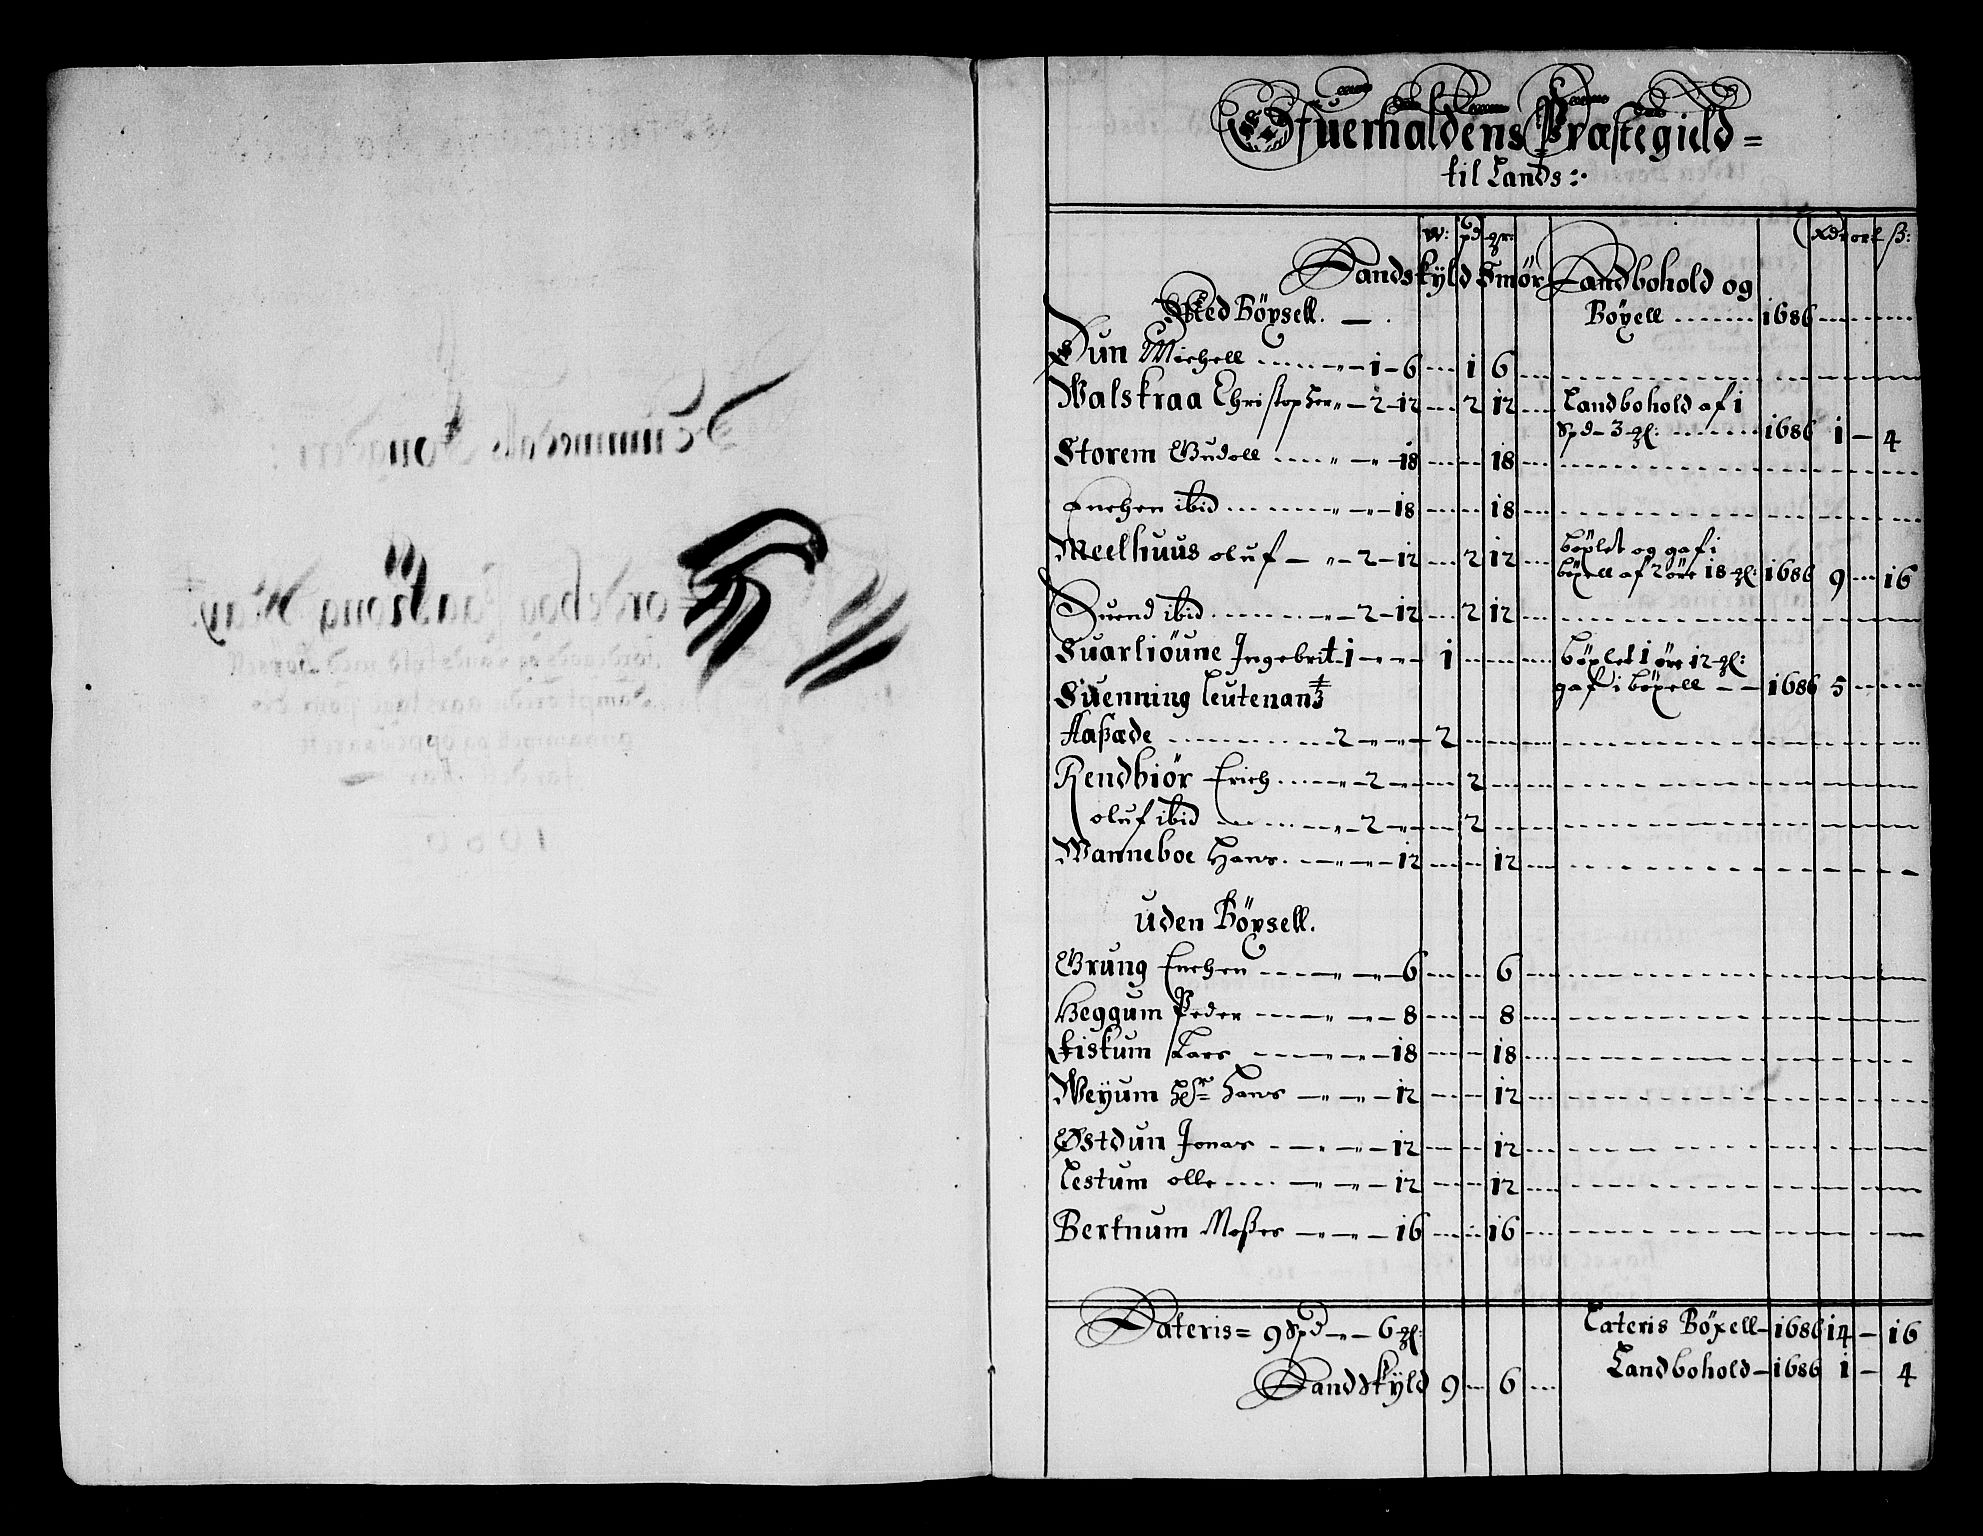 Offuerhaldens Præstegield =
til Lands :·
W: pd gr: Rdr ort ß:
Landskyld Smør Landbohold og
Med Böÿsell. — . Böxell ........ 1686
Dun Michell ....... 1 - 6 ... 1 6
Walskraa Christopher „ — 2 - 12 ... 2 12 ... Landbohold af 1
Spd - 3 gl: ........ 1686 1 — 4
Storem Gudoll .... „ — „ — 18 ..... 18
Enchen ibid ........ „ — „ — 18 ..... 18
Meelhuus oluf — „ — 2 — 12 ... 2 12 ... böxlet og gaf i
böxell af 2 öre 18 gl: 1686 9 ... 16
Suend ibid ........ — 2 — 12 ... 2 12
Suarliöune Ingebrit . 1 — „ — 1 ........ böxlet 1 öre 12 gl:
gaf i böxell — — 1686 5
Suenning Leutenant
Aaßæde ............ 2 — „ — 2
Rendbiör Erich .... „ — 2 — „ ... 2
oluf ibid ........ „ — 2 — „ ... 2
Wanneboe Hans . — „ — „ — 12 ..... 12
uden Böÿsell.
Grung Enchen .... — „ — „ — 6 ..... 6
Heggum Peder — — „ — „ — 8 ..... 8
Fiskum Lars — — „ — „ — 18 ..... 18
Weÿum Hr Hans — „ — „ — 12 ..... 12
Østdun Jonas — — „ — „ — 12 ..... 12
Lestum olle .... — „ — „ — 12 ..... 12
Bertnum Moßes — „ — „ — 16 ..... 16
Lateris = 9 Spd — „ — 6 gl: Lateris Böxell — 1686 14 — 16
Landskÿld 9 ... 6 .... Landbohold — 1686 1 — 4